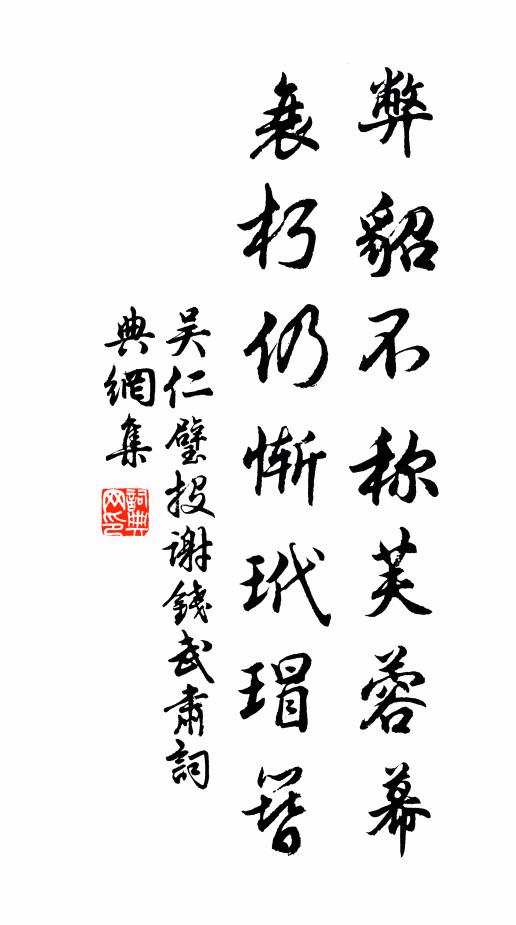 弊貂不称芙蓉幕
衰朽仍惭玳瑁簪
吴仁璧投谢錢武肅詞
典網集
詞典网印